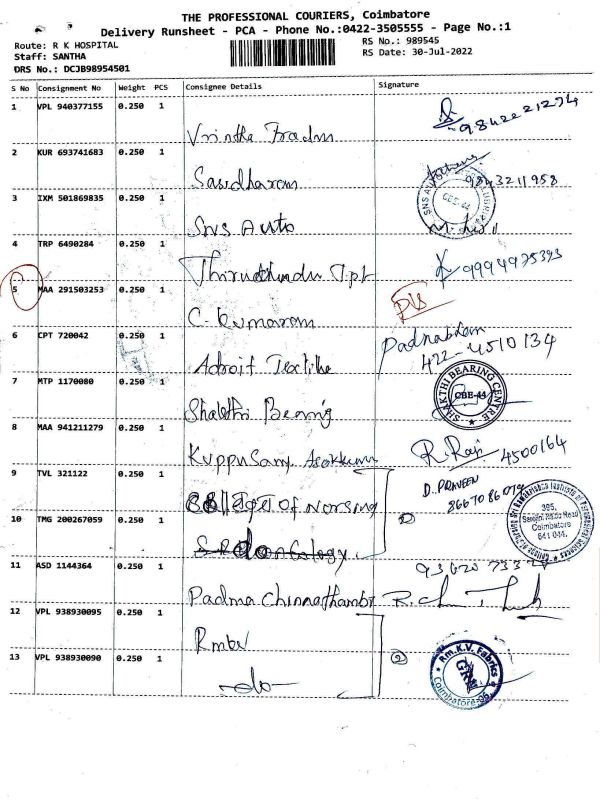 THE PROFESSIONAL COURIERS, Coimbatore
Delivery Runsheet - PCA - Phone No.:0422-3505555 - Page No.:1
Route: R K HOSPITAL
Staff: SANTHA
DRS No.: DCJB98954501
RS No.: 989545
RS Date: 30-Jul-2022
S No Consignment No Weight PCS Consignee Details Signature
1 VPL 940377155 0.250 1
9842221294
2 KUR 693741683 0.250 1
Sasidharan 9843211958
3 IXM 501869835 0.250 1
SNS Auto
4 TRP 6490284 0.250 1
9994975393
5 MAA 291503253 0.250 1
C. Kumaram
6 CPT 720042 0.250 1
Adroit Textile
Padnabham
422-4510134
7 MTP 1170080 0.250 1
Shakthi Bearing
SHAKTHI BEARING CENTRE
CBE-44
8 MAA 941211279 0.250 1
Kuppusamy Asokkumar R. Raji 4500164
9 TVL 321122 0.250 1
College of Nursing
D. PRAVEEN
10 TMG 200267059 0.250 1
395,
Sarojini Naidu Road
Coimbatore
641 044.
11 ASD 1144364 0.250 1
Padma Chinnathambi
12 VPL 938930095 0.250 1
Rmkv
13 VPL 938930090 0.250 1
-do-
②
Rm.K.V. Fabrics
Coimbatore